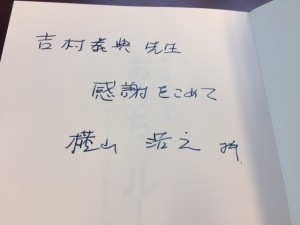 吉村義典 先生
感謝をこめて
横山 浩之 拝